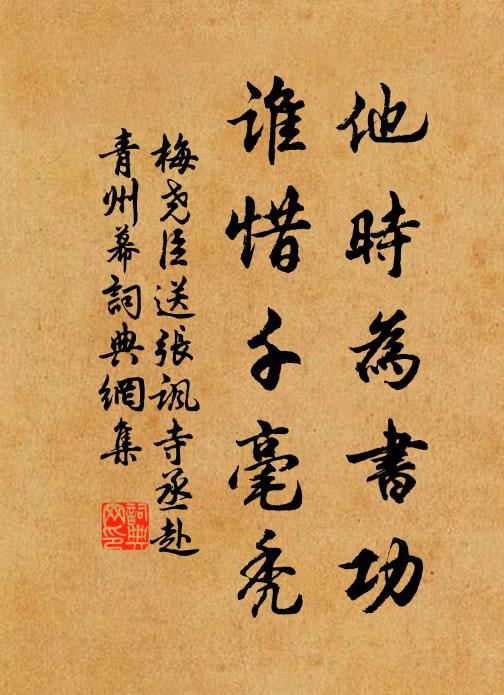 他時為書功
誰惜千毫禿
梅堯臣送張諷寺丞赴
青州幕詞典網集
詞典
网印